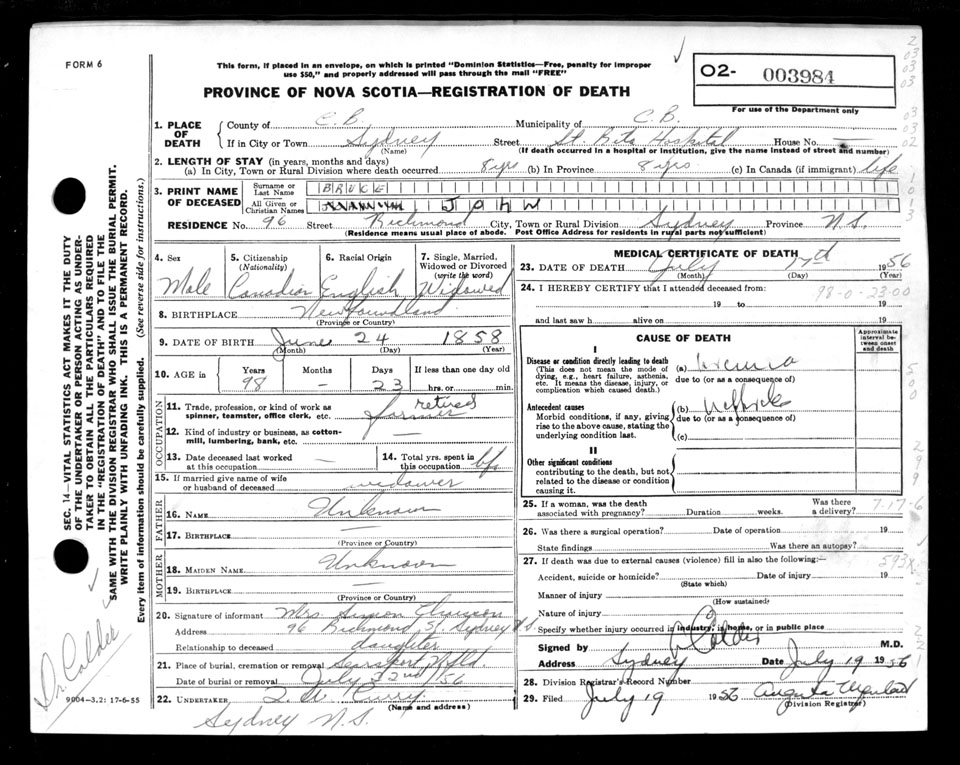 FORM 6
This form, if placed in an envelope, on which is printed "Dominion Statistics—Free, penalty for improper
use $50," and properly addressed will pass through the mail "FREE"
PROVINCE OF NOVA SCOTIA—REGISTRATION OF DEATH
O2- 003984
For use of the Department only
1. PLACE OF DEATH
County of C.B. Municipality of C.B.
If in City or Town Sydney Street St. Rita Hospital House No. —
(Name) (If death occurred in a hospital or institution, give the name instead of street and number)
2. LENGTH OF STAY (in years, months and days)
(a) In City, Town or Rural Division where death occurred 8 yrs (b) In Province 8 yrs (c) In Canada (if immigrant) life
3. PRINT NAME OF DECEASED
Surname or Last Name BRUCE
All Given or Christian Names John
RESIDENCE No. 96 Street Richmond City, Town or Rural Division Sydney Province N.S.
(Residence means usual place of abode. Post Office Address for residents in rural parts not sufficient)
4. Sex Male
5. Citizenship (Nationality) Canadian
6. Racial Origin English
7. Single, Married, Widowed or Divorced (write the word) Widowed
8. BIRTHPLACE Newfoundland
(Province or Country)
9. DATE OF BIRTH June 24 1858
(Month) (Day) (Year)
10. AGE in Years Months Days If less than one day
98 — 23 hrs. or min.
OCCUPATION
11. Trade, profession, or kind of work as spinner, teamster, office clerk, etc. retired farmer
12. Kind of industry or business, as cotton-mill, lumbering, bank, etc. —
13. Date deceased last worked at this occupation —
14. Total yrs. spent in this occupation life
15. If married give name of wife or husband of deceased widower
FATHER
16. NAME Unknown
17. BIRTHPLACE —
(Province or Country)
MOTHER
18. MAIDEN NAME Unknown
19. BIRTHPLACE —
(Province or Country)
20. Signature of informant Mrs
Address 96 Richmond St. Sydney N.S.
Relationship to deceased daughter
21. Place of burial, cremation or removal Nfld
Date of burial or removal July 22nd /56
22. UNDERTAKER Curry
(Name and address)
Sydney N.S.
MEDICAL CERTIFICATE OF DEATH
23. DATE OF DEATH July 17 1956
(Month) (Day) (Year)
24. I HEREBY CERTIFY that I attended deceased from:
98-0-23.00
19 to 19
and last saw h alive on 19
CAUSE OF DEATH
Approximate interval between onset and death
I
Disease or condition directly leading to death
(This does not mean the mode of dying, e.g., heart failure, asthenia, etc. It means the disease, injury, or complication which caused death.)
(a) Uremia
due to (or as a consequence of)
Antecedent causes
Morbid conditions, if any, giving rise to the above cause, stating the underlying condition last.
(b) Nephritis
due to (or as a consequence of)
(c)
II
Other significant conditions
contributing to the death, but not related to the disease or condition causing it.
25. If a woman, was the death associated with pregnancy? Duration weeks. Was there a delivery?
7-17-6
26. Was there a surgical operation? Date of operation 19
State findings Was there an autopsy?
27. If death was due to external causes (violence) fill in also the following:—
593X
Accident, suicide or homicide? Date of injury 19
(State which)
Manner of injury
(How sustained)
Nature of injury
Specify whether injury occurred in industry, in home, or in public place
Signed by Calder M.D.
Address Sydney Date July 19 1956
28. Division Registrar's Record Number
29. Filed July 19 1956
(Division Registrar)
SEC. 14—VITAL STATISTICS ACT MAKES IT THE DUTY
OF THE UNDERTAKER OR PERSON ACTING AS UNDER-
TAKER TO OBTAIN ALL THE PARTICULARS REQUIRED
IN THE "REGISTRATION OF DEATH" AND TO FILE THE
SAME WITH THE DIVISION REGISTRAR WHO SHALL ISSUE THE BURIAL PERMIT.
WRITE PLAINLY WITH UNFADING INK. THIS IS A PERMANENT RECORD.
Every item of information should be carefully supplied. (See reverse side for instructions.)
Dr. Calder
9004-3.2: 17-6-55